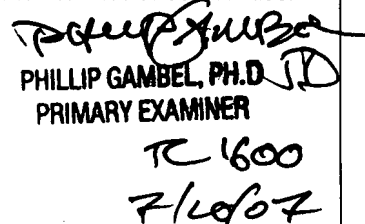 Phillip Gambel
PHILLIP GAMBEL, PH.D JD
PRIMARY EXAMINER
TC 1600
7/20/07